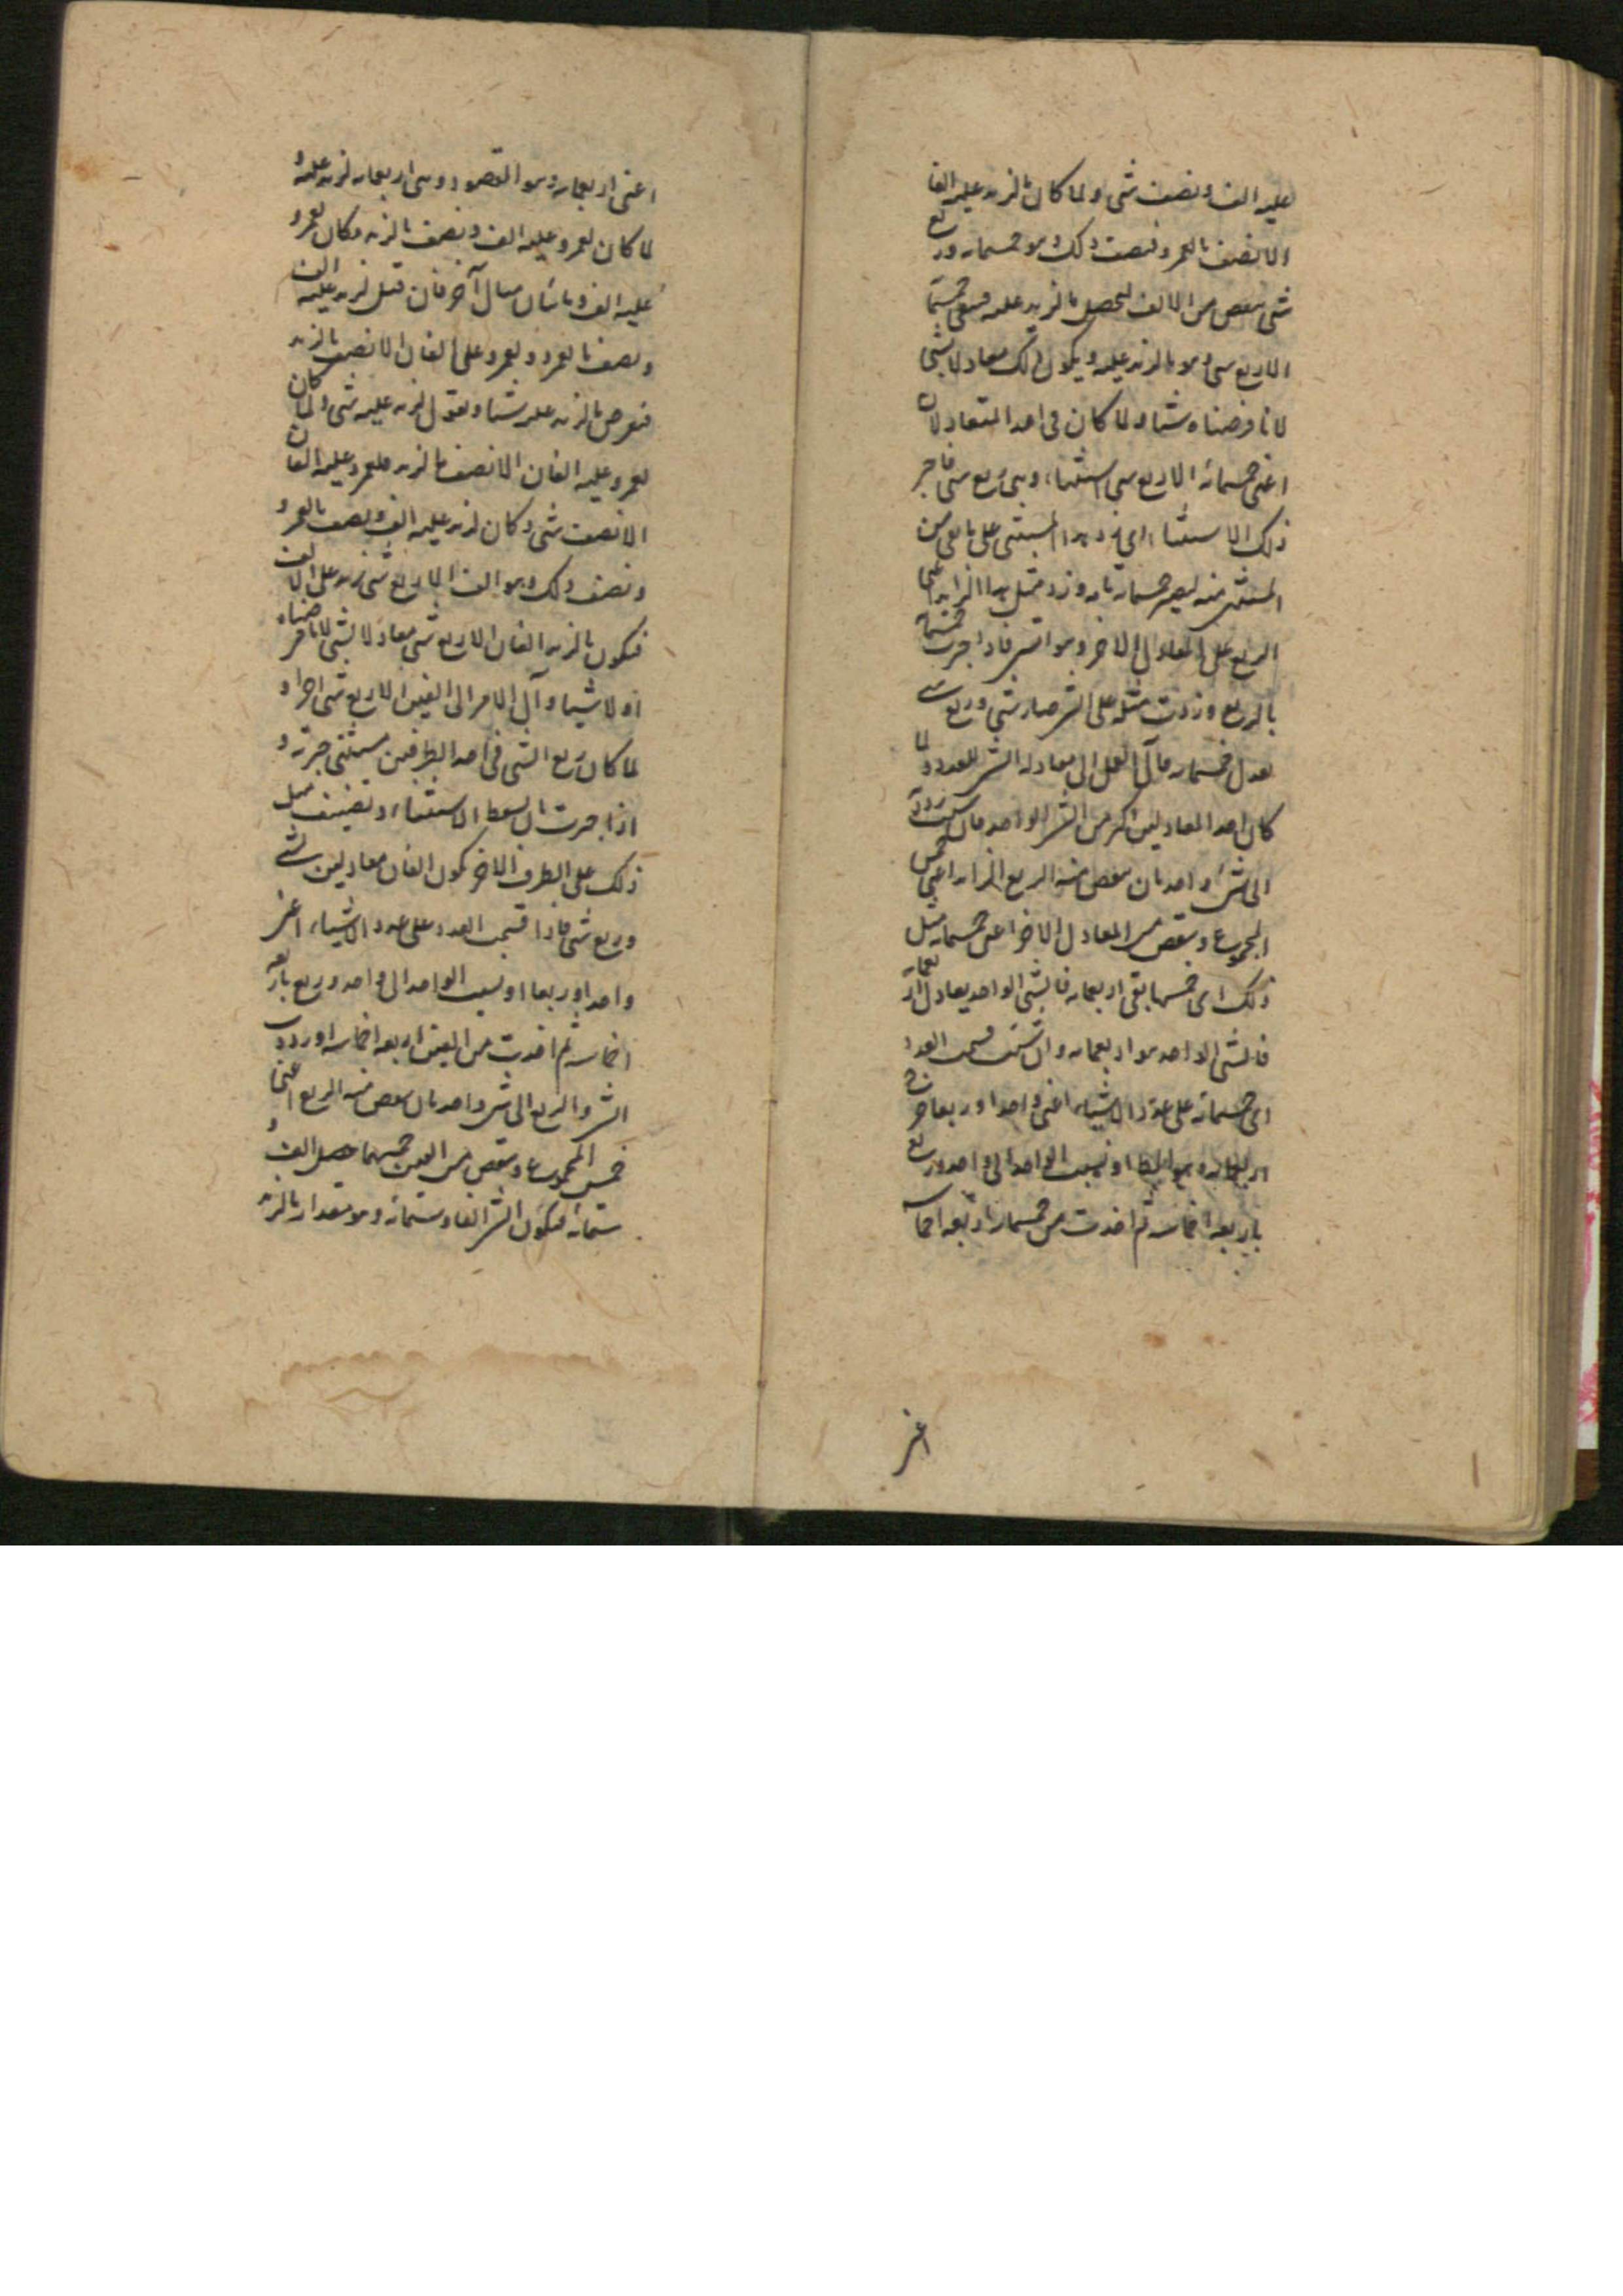 عليه الف ونصف شئ ولما كان ما لزيد عليه الفا
الا نصف ما لعمرو فنصف ذلك وهو خمسمايه وربع
شئ ينقص من الالف ليحصل ما لزيد عليه فيبقى خمسمائة
الا ربع شئ وهو ما لزيد عليه ويكون ذلك معادلا لشئ
لانا فرضناه شيئا ولما كان فى احد المتعادلان
اعنى خمسمائة الا ربع شئ استثناء وهى ربع شئ فاجبر
ذلك الاستثناء اى زد هذا المستثنى على ما بقى من
المستثنى منه ليصير خمسمايه تامه وزد مثل هذا الزايد اعنى
الربع على المعادل الاخر وهو الشئ فاذا جبرت خمسمائة
بالربع وزدت مثله على الشئ صار شئ وربع شئ
يعدل خمسمايه فآل العمل الى معادله الشئ للعدد ولما
كان احد المعادلين اكثر من الشئ الواحد فان شئت رددته
الى شئ واحد بان ينقص منه الربع الزايد اعنى خمس
المجموع وينقص من المعادل الاخر اعنى خمسمايه مثل
ذلك اى خمسها بقى اربعمايه فالشئ الواحد يعادل اربعمايه
فالشئ الواحد هو اربعمايه وان شئت قسمت العدد
اى خمسمائة على عدد الاشياء اعنى واحدا وربعا خرج
اربعمايه وهو المط او نسبت الواحد الى واحد وربع
باربعه اخماسه ثم اخذت من خمسمايه اربعه اخماسه
اعنى
اعنى اربعمايه وهو المقصود وهى اربعمايه لزيد عليه و
لما كان لعمرو عليه الف ونصف ما لزيد فكان لعمرو
عليه الف ومائتان مثال آخر فان قيل لزيد عليه الف
ونصف ما لعمرو ولعمرو على الفان الا نصف ما لزيد
فنفرض ما لزيد عليه شيئا ونقول لزيد عليه شئ ولما كان
لعمرو عليه الفان الا نصف ما لزيد فلعمرو عليه الفان
الا نصف شئ وكان لزيد عليه الف ونصف ما لعمرو
ونصف ذلك وهو الف الا ربع شئ نزيد على الالف
فيكون ما لزيد الفان الا ربع شئ معادلا لشئ لانا فرضناه
اولا شيئا وآل الامر الى الفين الا ربع شئ اجرا و
لما كان ربع الشئ فى احد الطرفين مستثنى جبرته و
اذا جبرت بان يسقط الاستثناء وتضيف مثل
ذلك على الطرف الاخر يكون الفان معادلين لشئ
وربع شئ فاذا قسمت العدد على عدد الاشياء اعنى
واحدا وربعا او نسبت الواحد الى واحد وربع باربعه
اخماسه ثم اخذت من الفين اربعه اخماسه او رددت
الشئ والربع الى شئ واحد بان ينقص منه الربع اعنى
خمس المجموع وينقص من الفين خمسهما حصل الف و
ستمائة فيكون الشئ الفا وستمائة وهو مقدار ما لزيد